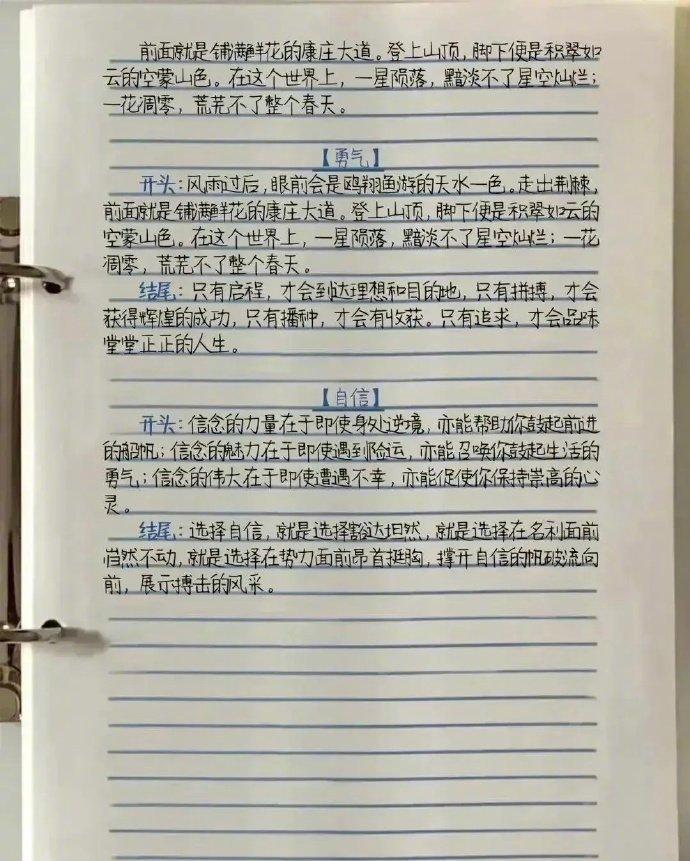 前面就是铺满鲜花的康庄大道。登上山顶，脚下便是积翠如
云的空蒙山色。在这个世界上，一星陨落，黯淡不了星空灿烂；
一花凋零，荒芜不了整个春天。
【勇气】
开头：风雨过后，眼前会是鸥翔鱼游的天水一色。走出荆棘，
前面就是铺满鲜花的康庄大道。登上山顶，脚下便是积翠如云的
空蒙山色。在这个世界上，一星陨落，黯淡不了星空灿烂；一花
凋零，荒芜不了整个春天。
结尾：只有启程，才会到达理想和目的地，只有拼搏，才会
获得辉煌的成功，只有播种，才会有收获。只有追求，才会品味
堂堂正正的人生。
【自信】
开头：信念的力量在于即使身处逆境，亦能帮助你鼓起前进
的船帆；信念的魅力在于即使遇到险运，亦能召唤你鼓起生活的
勇气；信念的伟大在于即使遭遇不幸，亦能促使你保持崇高的心
灵。
结尾：选择自信，就是选择豁达坦然，就是选择在名利面前
岿然不动，就是选择在势力面前昂首挺胸，撑开自信的帆破流向
前，展示搏击的风采。